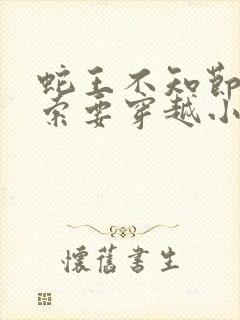 蛇王不知節
索要穿越小
懷舊書生